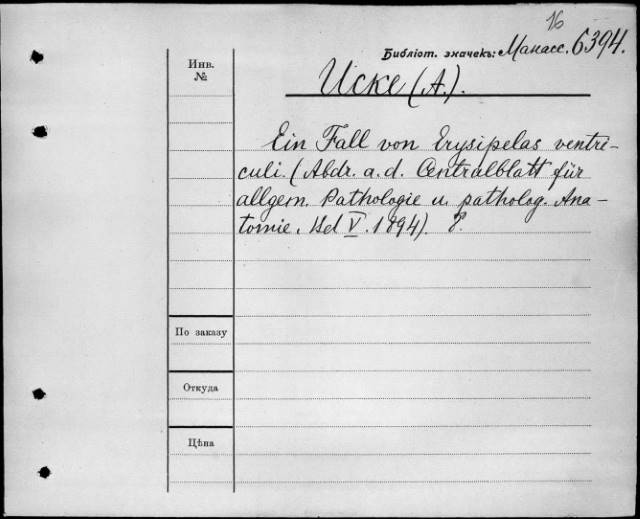 16
Библіот. значекъ: Манасс. 6394.
Инв.
№
Ucke (A.).
Ein Fall von Erysipelas ventri-
culi. (Abdr. a. d. Centralblatt für
allgem. Pathologie u. patholog. Ana-
tomie. Bd V. 1894). 8.
По заказу
Откуда
Цѣна